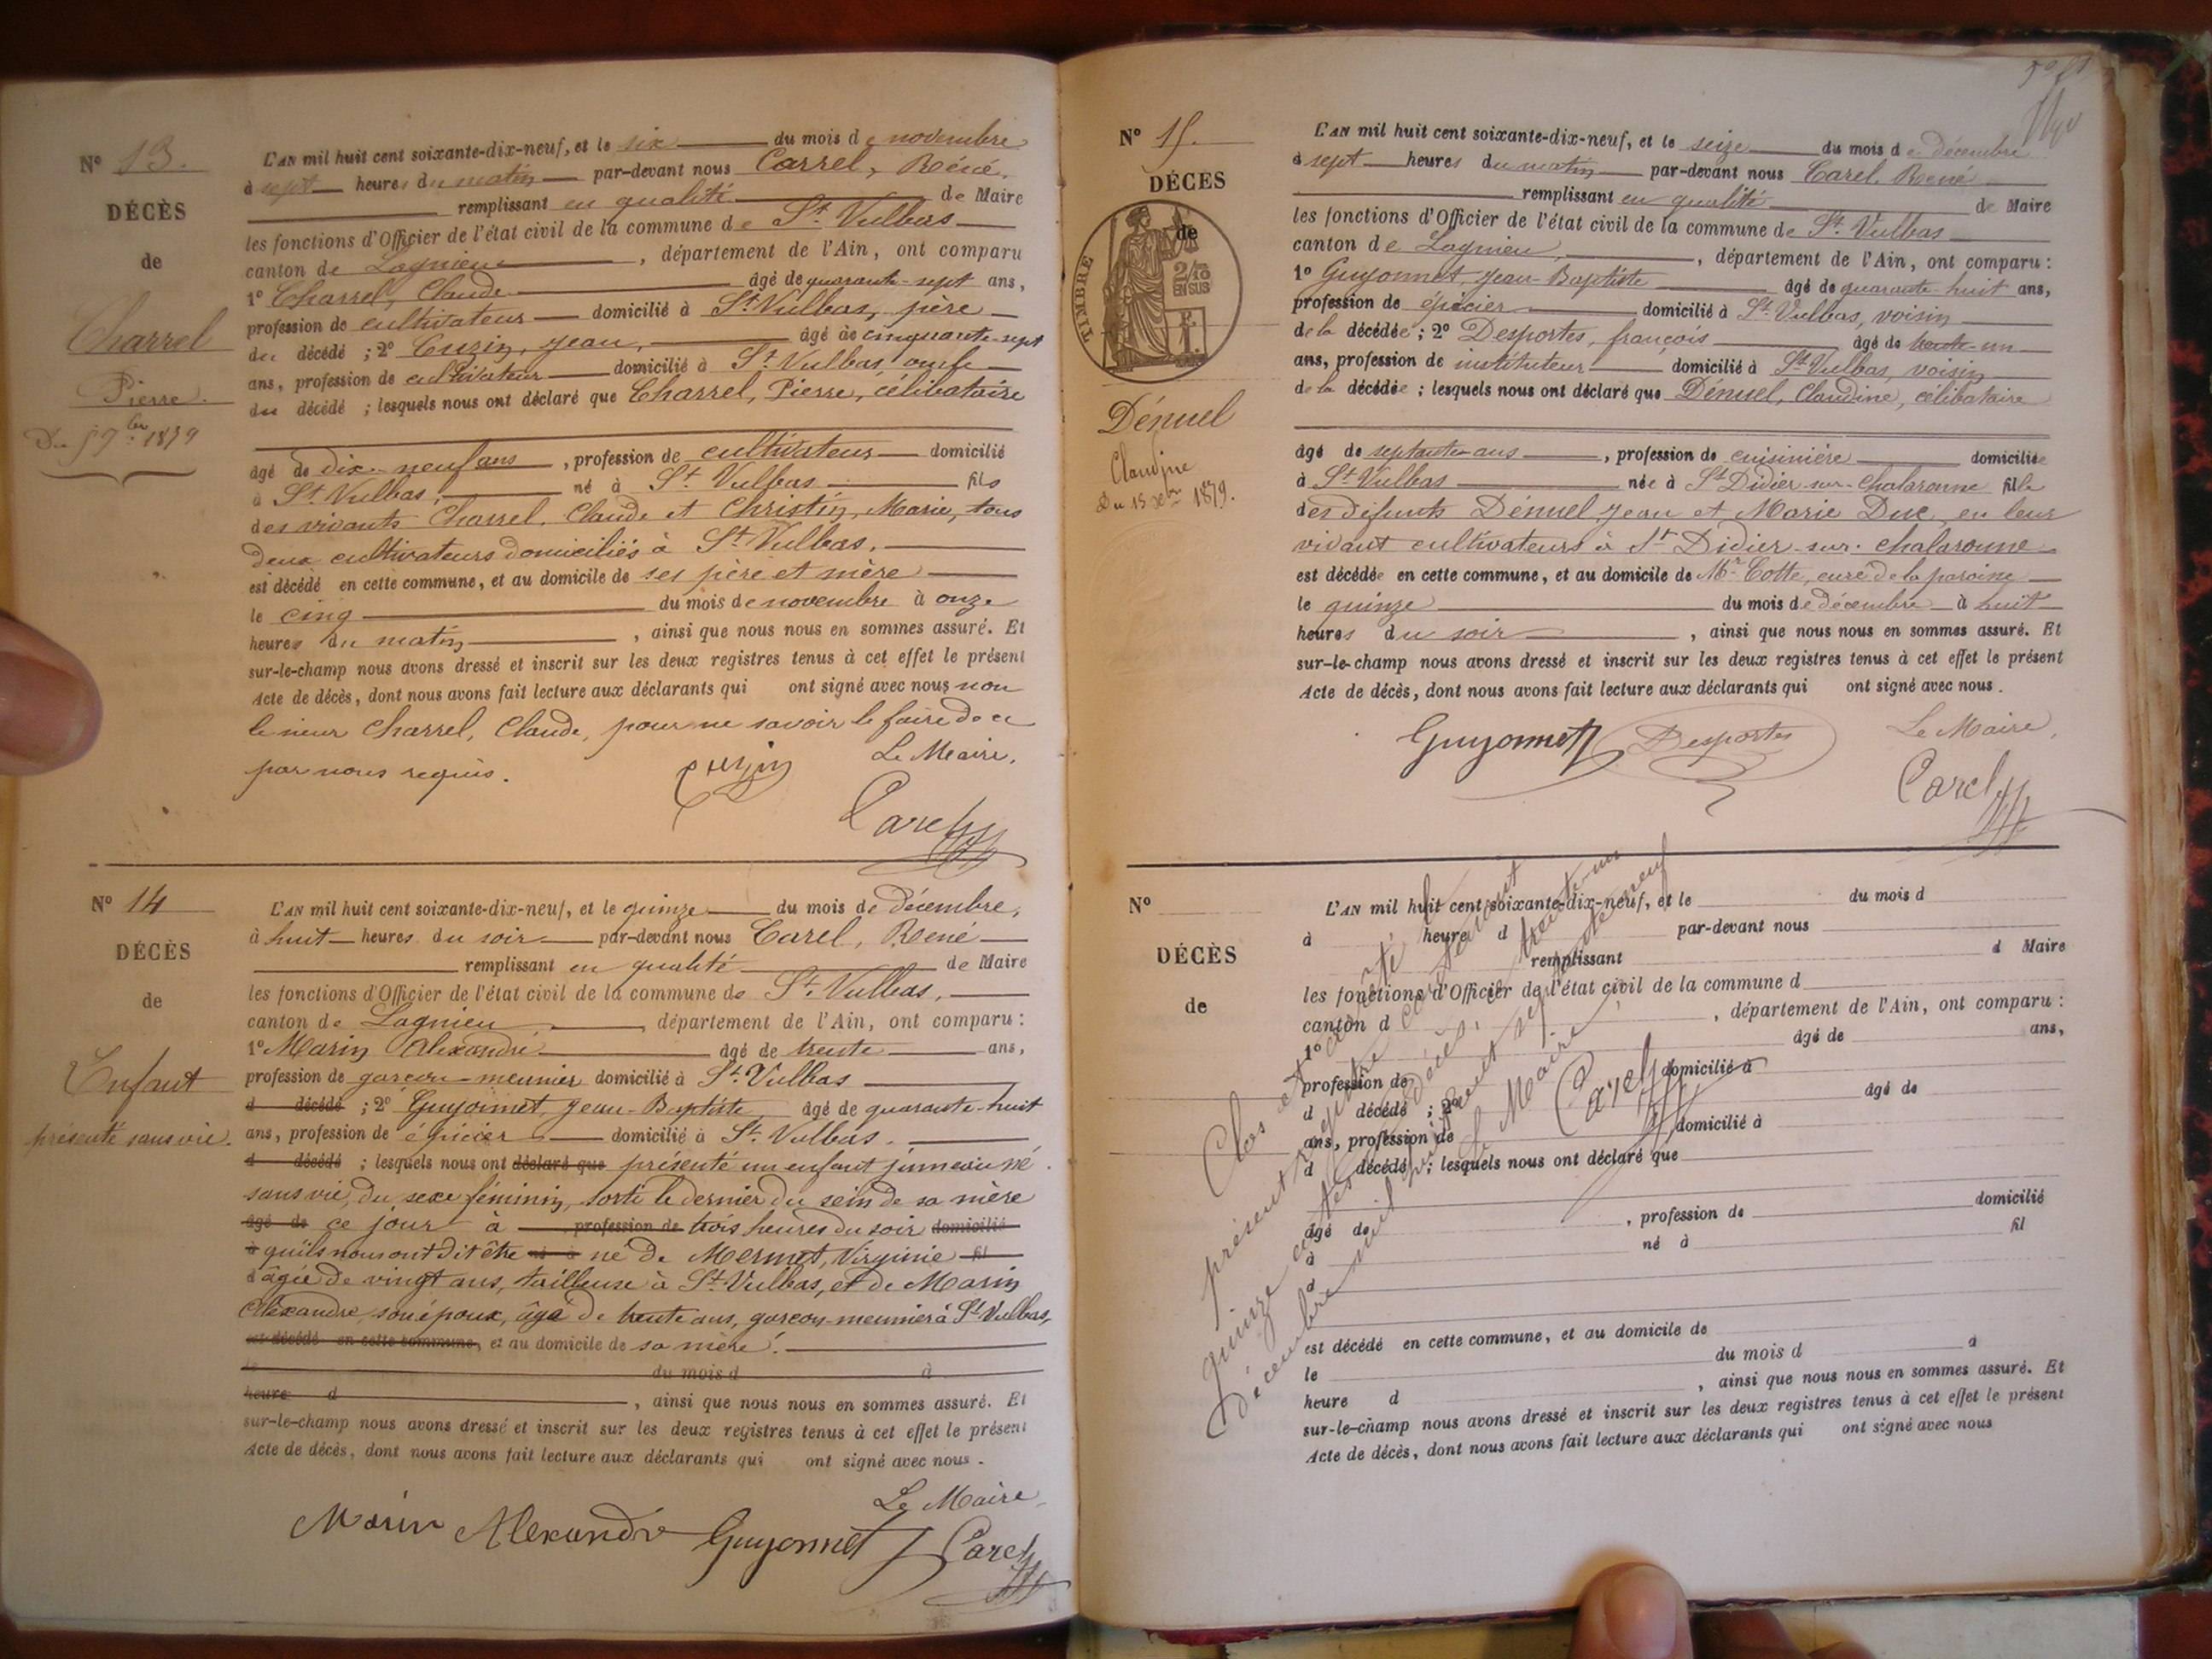 N° 13.
DÉCÈS
de
Charrel
Pierre.
Du 5 9bre 1879
L'AN mil huit cent soixante-dix-neuf, et le six du mois de novembre
à sept heures du matin par-devant nous Carrel, Réné,
remplissant en qualité de Maire
les fonctions d'Officier de l'état civil de la commune de St. Vulbas
canton de Lagnieu, département de l'Ain, ont comparu
1° Charrel, Claude âgé de quarante-sept ans,
profession de cultivateur domicilié à St. Vulbas, père
du décédé ; 2° Cuzin, Jean, âgé de cinquante-sept
ans, profession de cultivateur domicilié à St. Vulbas, oncle
du décédé ; lesquels nous ont déclaré que Charrel, Pierre, célibataire
âgé de dix-neuf ans, profession de cultivateur domicilié
à St. Vulbas, né à St. Vulbas fils
des vivants Charrel, Claude et Christin, Marie, tous
deux cultivateurs domiciliés à St. Vulbas.
est décédé en cette commune, et au domicile de ses père et mère
le cinq du mois de novembre à onze
heures du matin, ainsi que nous nous en sommes assuré. Et
sur-le-champ nous avons dressé et inscrit sur les deux registres tenus à cet effet le présent
Acte de décès, dont nous avons fait lecture aux déclarants qui ont signé avec nous non
le sieur Charrel, Claude, pour ne savoir le faire de ce
par nous requis.
Cuzin
Le Maire,
Carel
N° 14
DÉCÈS
de
Enfant
présenté sans vie.
L'AN mil huit cent soixante-dix-neuf, et le quinze du mois de décembre,
à huit heures du soir par-devant nous Carel, René
remplissant en qualité de Maire
les fonctions d'Officier de l'état civil de la commune de St. Vulbas,
canton de Lagnieu, département de l'Ain, ont comparu :
1° Marin Alexandre âgé de trente ans,
profession de garçon-meunier domicilié à St. Vulbas
d décédé ; 2° Guyonnet, Jean-Baptiste âgé de quarante-huit
ans, profession de épicier domicilié à St. Vulbas.
d décédé ; lesquels nous ont déclaré que présenté un enfant jumeau né
sans vie, du sexe féminin, sorti le dernier du sein de sa mère
âgé de ce jour à profession de trois heures du soir domicilié
à qu'ils nous ont dit être né à né de Mermet, Virginie fil
d âgée de vingt ans, tailleuse à St. Vulbas, et de Marin
Alexandre, son époux, âgé de trente ans, garçon-meunier à St. Vulbas,
est décédé en cette commune, et au domicile de sa mère.
le du mois d à
heure d, ainsi que nous nous en sommes assuré. Et
sur-le-champ nous avons dressé et inscrit sur les deux registres tenus à cet effet le présent
Acte de décès, dont nous avons fait lecture aux déclarants qui ont signé avec nous.
Le Maire
Marin Alexandre Guyonnet Carel
N° 15.
DÉCÈS
de
TIMBRE
2/10
EN SUS
Dénuel
Claudine
Du 15 Xbre 1879.
L'AN mil huit cent soixante-dix-neuf, et le seize du mois de décembre
à sept heures du matin par-devant nous Carel, René
remplissant en qualité de Maire
les fonctions d'Officier de l'état civil de la commune de St. Vulbas
canton de Lagnieu, département de l'Ain, ont comparu :
1° Guyonnet, Jean-Baptiste âgé de quarante-huit ans,
profession de épicier domicilié à St. Vulbas, voisin
de la décédée ; 2° Desportes, françois âgé de trente-un
ans, profession de instituteur domicilié à St. Vulbas, voisin
de la décédée ; lesquels nous ont déclaré que Dénuel, Claudine, célibataire
âgé de septante ans, profession de cuisinière domiciliée
à St. Vulbas née à St. Didier-sur-Chalaronne fille
des défunts Dénuel, Jean et Marie Duc, en leur
vivant cultivateurs à St. Didier-sur-Chalaronne
est décédée en cette commune, et au domicile de Mr. Cotte, curé de la paroisse
le quinze du mois de décembre à huit
heures du soir, ainsi que nous nous en sommes assuré. Et
sur-le-champ nous avons dressé et inscrit sur les deux registres tenus à cet effet le présent
Acte de décès, dont nous avons fait lecture aux déclarants qui ont signé avec nous.
Guyonnet Desportes
Le Maire,
Carel
N°
DÉCÈS
de
L'AN mil huit cent soixante-dix-neuf, et le du mois d
à heure d par-devant nous
remplissant d Maire
les fonctions d'Officier de l'état civil de la commune d
canton d, département de l'Ain, ont comparu :
1° âgé de ans,
profession de domicilié à
d décédé ; 2° âgé de
ans, profession de domicilié à
d décédé ; lesquels nous ont déclaré que
âgé de, profession de domicilié
à né à fil
d
est décédé en cette commune, et au domicile de
le du mois d à
heure d, ainsi que nous nous en sommes assuré. Et
sur-le-champ nous avons dressé et inscrit sur les deux registres tenus à cet effet le présent
Acte de décès, dont nous avons fait lecture aux déclarants qui ont signé avec nous
Clos et arrêté le
présent registre contenant
quinze actes de décès, le trente-un
décembre mil huit cent septante-neuf
Le Maire,
Carel